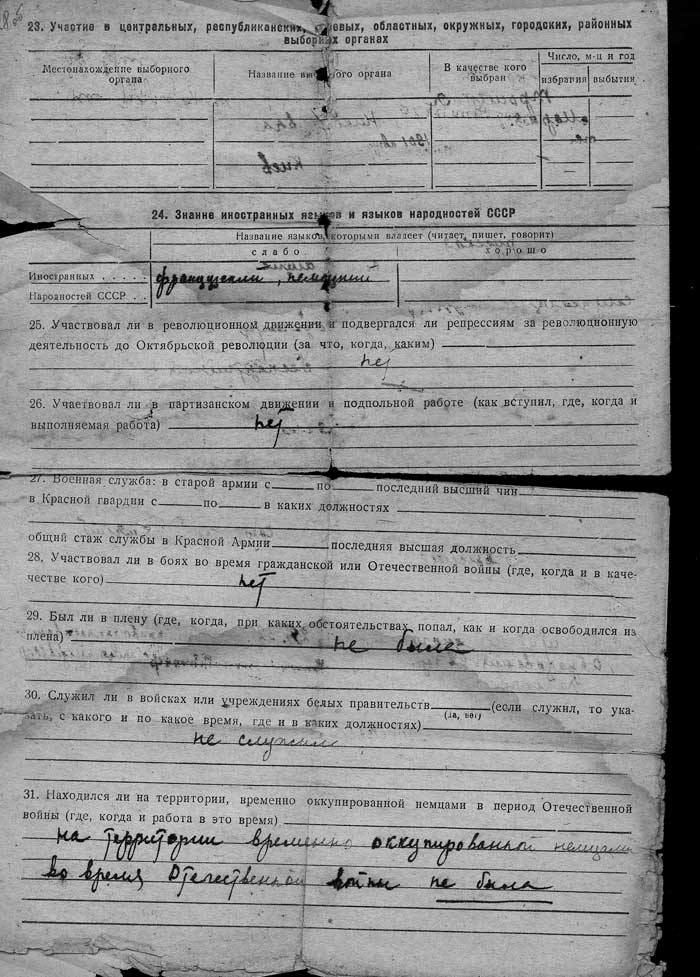 23. Участие в центральных, республиканских, краевых, областных, окружных, городских, районных
выборных органах
Местонахождение выборного органа
Название выборного органа
В качестве кого выбран
Число, м-ц и год
избрания
выбытия
Киев
24. Знание иностранных языков и языков народностей СССР
Название языков, которыми владеет (читает, пишет, говорит)
слабо
хорошо
Иностранных . . . . . французский, немецкий
Народностей СССР . .
25. Участвовал ли в революционном движении и подвергался ли репрессиям за революционную
деятельность до Октябрьской революции (за что, когда, каким)
нет
26. Участвовал ли в партизанском движении и подпольной работе (как вступил, где, когда и
выполняемая работа) нет
27. Военная служба: в старой армии с по последний высший чин
в Красной гвардии с по в каких должностях
общий стаж службы в Красной Армии последняя высшая должность
28. Участвовал ли в боях во время гражданской или Отечественной войны (где, когда и в каче-
честве кого) нет
29. Был ли в плену (где, когда, при каких обстоятельствах попал, как и когда освободился из
плена) не была
30. Служил ли в войсках или учреждениях белых правительств (если служил, то ука-
(да, нет)
зать, с какого и по какое время, где и в каких должностях)
не служила
31. Находился ли на территории, временно оккупированной немцами в период Отечественной
войны (где, когда и работа в это время)
на территории временно оккупированной немцами
во время Отечественной войны не была